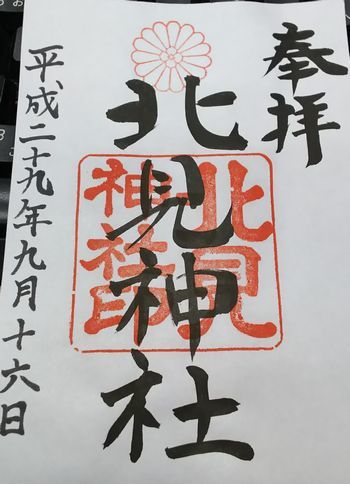 奉拝
北見神社
北見
神社印
平成二十九年九月十六日